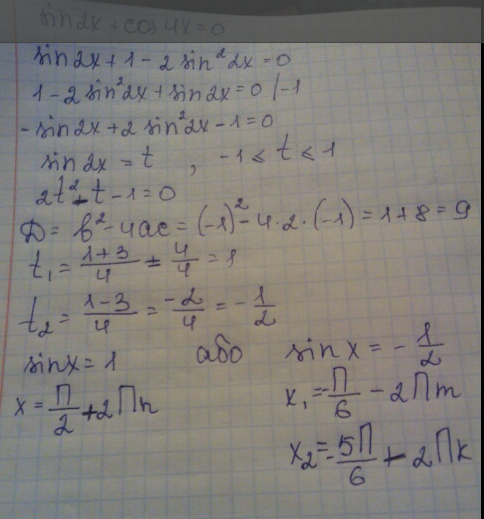 sin2x + cos4x = 0
sin2x + 1 - 2 sin²2x = 0
1 - 2 sin²2x + sin2x = 0 |-1
- sin2x + 2 sin²2x - 1 = 0
sin2x = t , -1 ≤ t ≤ 1
2t² - t - 1 = 0
D = b² - 4ac = (-1)² - 4·2·(-1) = 1+8 = 9
t₁ = (1+3)/4 = 4/4 = 1
t₂ = (1-3)/4 = -2/4 = -1/2
sinx = 1 або sin x = - 1/2
x = П/2 + 2Пn x₁ = -П/6 - 2Пm
x₂ = -5П/6 - 2Пk